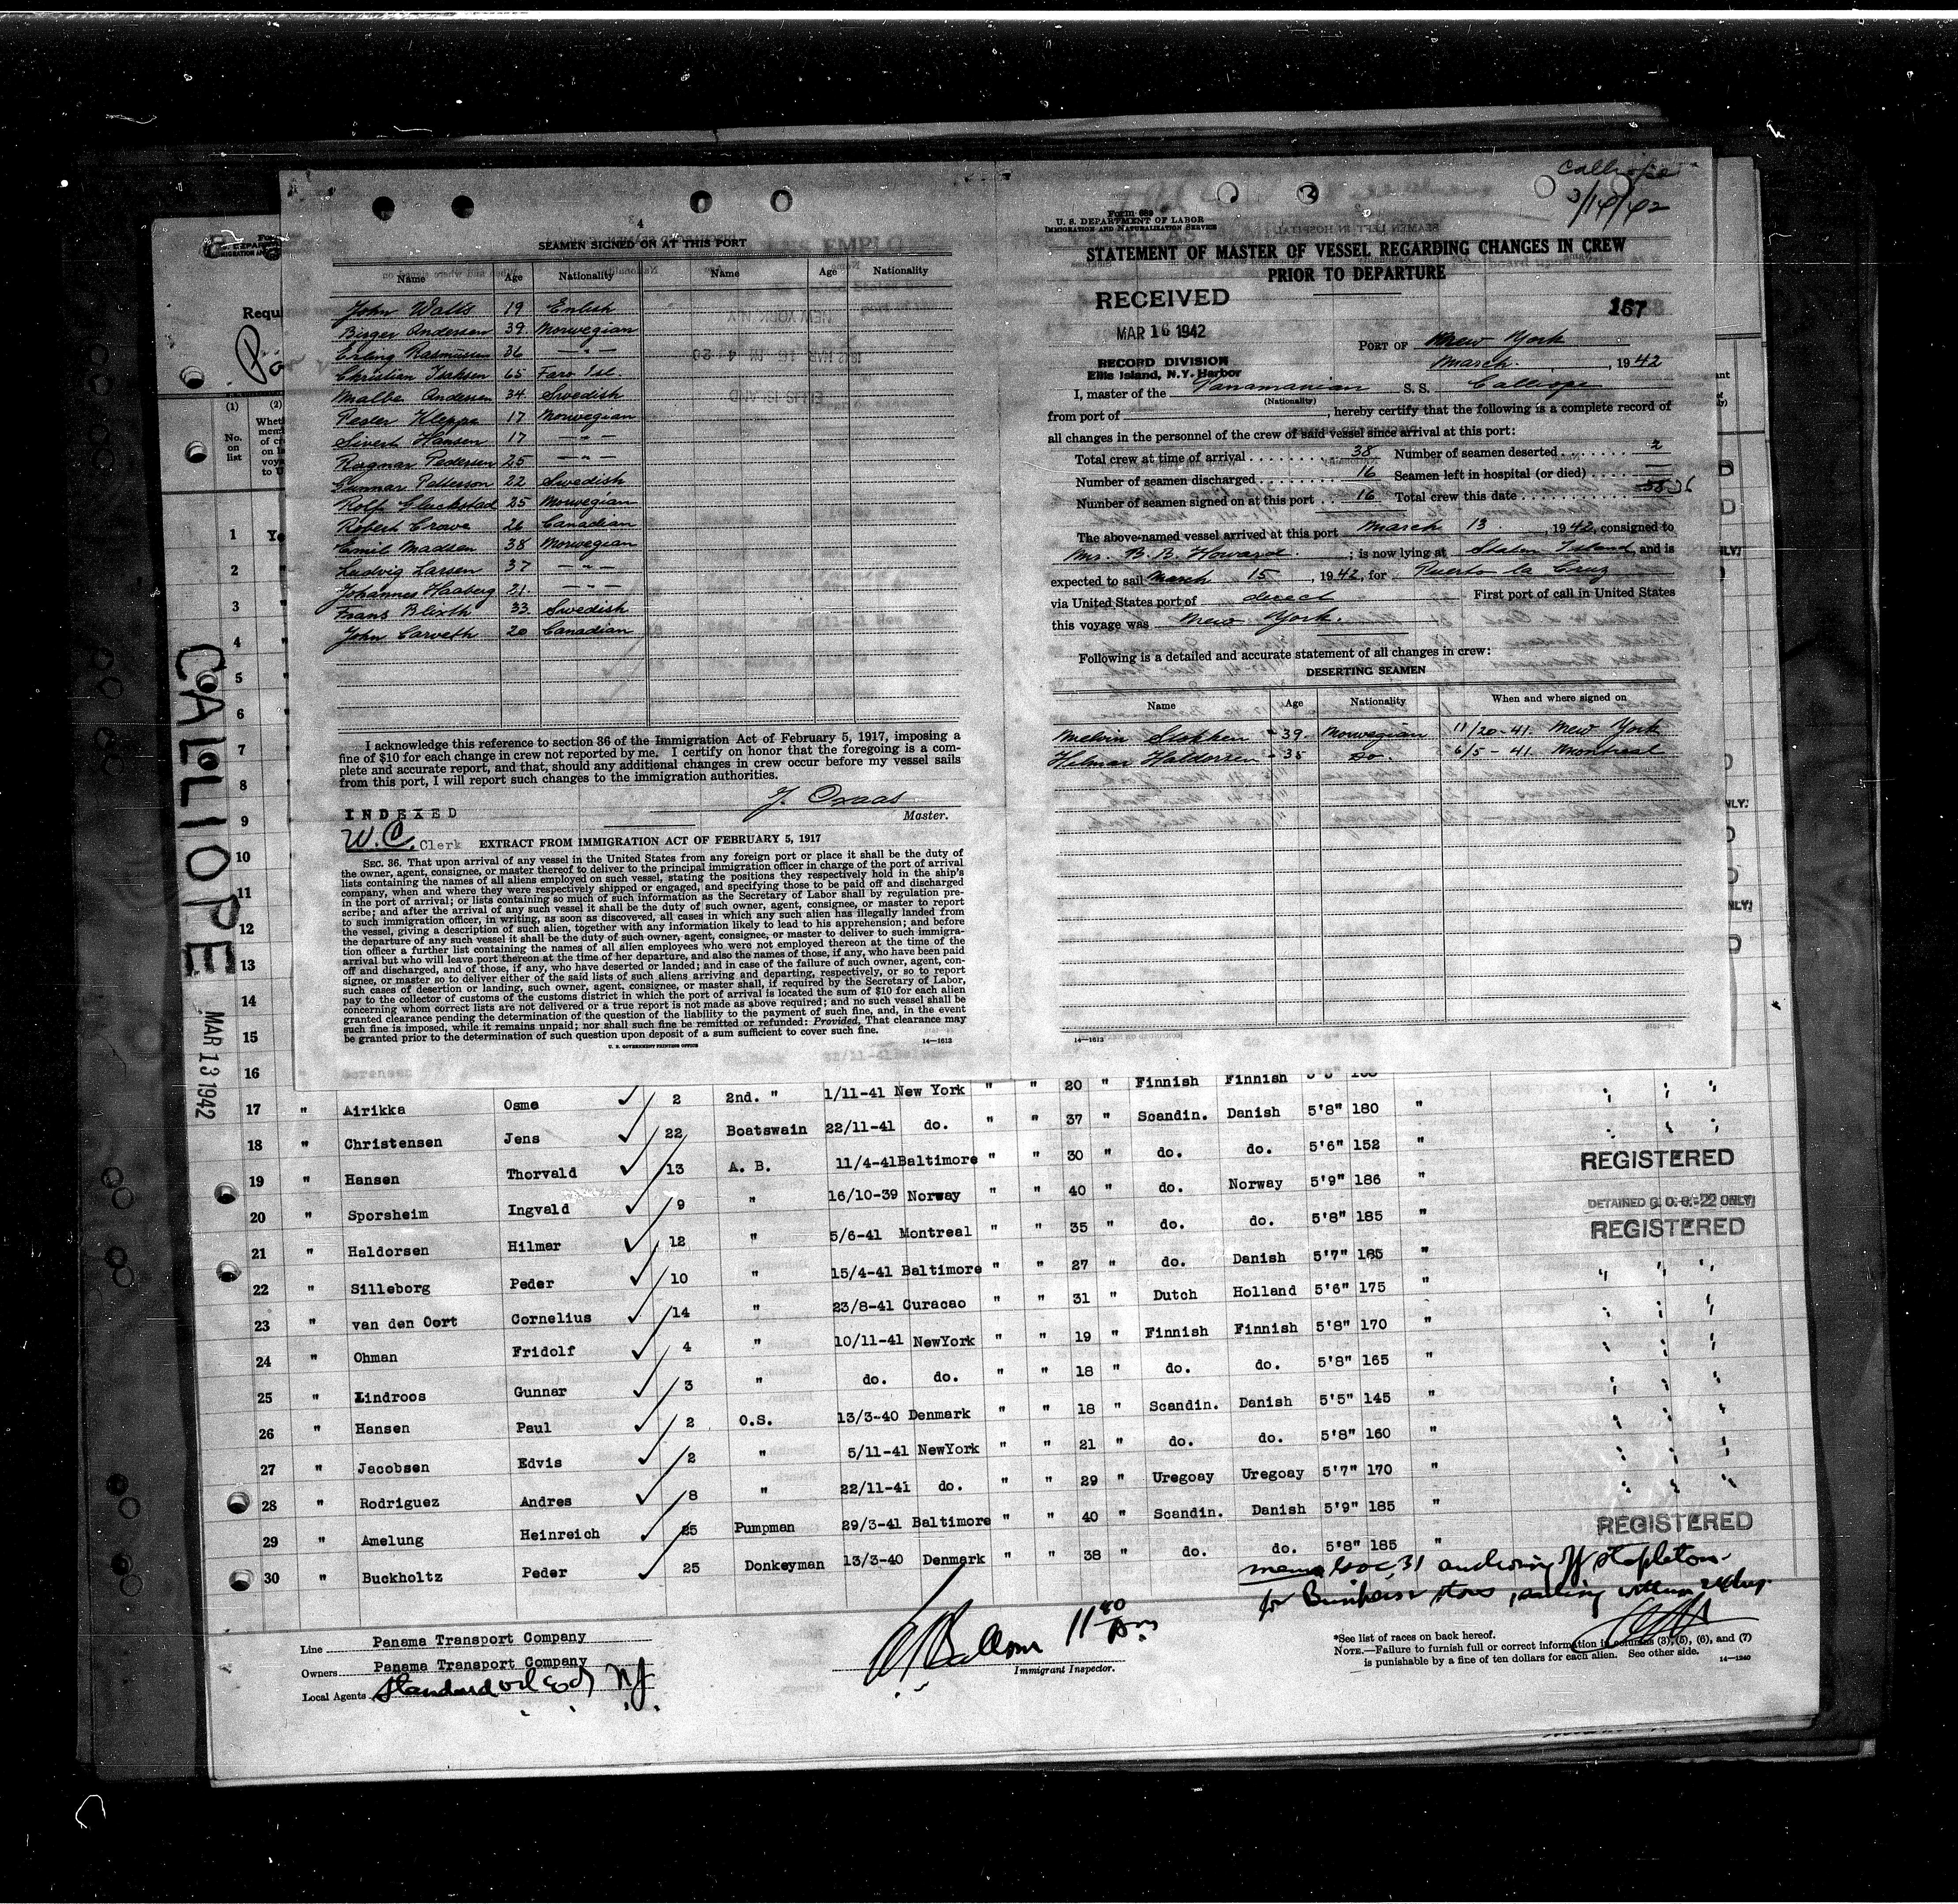 Calliope
3/14/42
4
SEAMEN SIGNED ON AT THIS PORT
Name Age Nationality Name Age Nationality
John Watts 19 Enlish
Birger Andersen 39 Norwegian
Erling Rasmussen 36 — " —
Christian Isaksen 65 Faro Isl.
Malbe Andersen 34 Swedish
Peder Kleppe 17 Norwegian
Sivert Hansen 17 — " —
Ragnar Pedersen 25 — " —
Gunnar Petterson 22 Swedish
Rolf Gluckstad 25 Norwegian
Robert Crave 26 Canadian
Emil Madsen 38 Norwegian
Ludvig Larsen 37 — " —
Johannes Haaberg 21 — " —
Frans Blixth 33 Swedish
John Carveth 20 Canadian
I acknowledge this reference to section 36 of the Immigration Act of February 5, 1917, imposing a
fine of $10 for each change in crew not reported by me. I certify on honor that the foregoing is a com-
plete and accurate report, and that, should any additional changes in crew occur before my vessel sails
from this port, I will report such changes to the immigration authorities.
Master.
INDEXED
W.C. Clerk
EXTRACT FROM IMMIGRATION ACT OF FEBRUARY 5, 1917
SEC. 36. That upon arrival of any vessel in the United States from any foreign port or place it shall be the duty of
the owner, agent, consignee, or master thereof to deliver to the principal immigration officer in charge of the port of arrival
lists containing the names of all aliens employed on such vessel, stating the positions they respectively hold in the ship's
company, when and where they were respectively shipped or engaged, and specifying those to be paid off and discharged
in the port of arrival; or lists containing so much of such information as the Secretary of Labor shall by regulation pre-
scribe; and after the arrival of any such vessel it shall be the duty of such owner, agent, consignee, or master to report
to such immigration officer, in writing, as soon as discovered, all cases in which any such alien has illegally landed from
the vessel, giving a description of such alien, together with any information likely to lead to his apprehension; and before
the departure of any such vessel it shall be the duty of such owner, agent, consignee, or master to deliver to such immigra-
tion officer a further list containing the names of all alien employees who were not employed thereon at the time of the
arrival but who will leave port thereon at the time of her departure, and also the names of those, if any, who have been paid
off and discharged, and of those, if any, who have deserted or landed; and in case of the failure of such owner, agent, con-
signee, or master so to deliver either of the said lists of such aliens arriving and departing, respectively, or so to report
such cases of desertion or landing, such owner, agent, consignee, or master shall, if required by the Secretary of Labor,
pay to the collector of customs of the customs district in which the port of arrival is located the sum of $10 for each alien
concerning whom correct lists are not delivered or a true report is not made as above required; and no such vessel shall be
granted clearance pending the determination of the question of the liability to the payment of such fine, and, in the event
such fine is imposed, while it remains unpaid; nor shall such fine be remitted or refunded: Provided, That clearance may
be granted prior to the determination of such question upon deposit of a sum sufficient to cover such fine.
U. S. GOVERNMENT PRINTING OFFICE 14—1613
Form 689
U. S. DEPARTMENT OF LABOR
IMMIGRATION AND NATURALIZATION SERVICE
STATEMENT OF MASTER OF VESSEL REGARDING CHANGES IN CREW
PRIOR TO DEPARTURE
RECEIVED
MAR 16 1942
RECORD DIVISION
Ellis Island, N.Y. Harbor
167
PORT OF New York
March. , 1942
I, master of the Panamanian S. S. Calliope
(Nationality)
from port of , hereby certify that the following is a complete record of
all changes in the personnel of the crew of said vessel since arrival at this port:
Total crew at time of arrival 38 Number of seamen deserted 2
Number of seamen discharged 16 Seamen left in hospital (or died) —
Number of seamen signed on at this port 16 Total crew this date 36
The above-named vessel arrived at this port March 13 , 1942, consigned to
Mr. B. B. Howard. ; is now lying at Staten Island and is
expected to sail March 15 , 1942, for Puerto la Cruz
via United States port of direct First port of call in United States
this voyage was New York.
Following is a detailed and accurate statement of all changes in crew:
DESERTING SEAMEN
Name Age Nationality When and where signed on
Melvin Stokken - 39. Norwegian 11/20-41. New York
Hilmar Haldorsen - 35 Do. 6/5-41. Montreal
14—1613
CALLIOPE
MAR 13 1942
Requi
(1) (2)
No.
on
list
1 Ye
2 "
3 "
4 "
5 "
6 "
7 "
8 "
9
10
11
12
13
14
15
16
20 " Finnish Finnish
17 " Airikka Osmo 2 2nd. " 1/11-41 New York " " 37 " Scandin. Danish 5'8" 180 "
18 " Christensen Jens 22 Boatswain 22/11-41 do. " " 30 " do. do. 5'6" 152 "
REGISTERED
19 " Hansen Thorvald 13 A. B. 11/4-41 Baltimore " " 40 " do. Norway 5'9" 186 "
DETAINED G. O. C-22 ONLY
20 " Sporsheim Ingvald 9 " 16/10-39 Norway " " 35 " do. do. 5'8" 185 "
REGISTERED
21 " Haldorsen Hilmar 12 " 5/6-41 Montreal " " 27 " do. Danish 5'7" 185 "
22 " Silleborg Peder 10 " 15/4-41 Baltimore " " 31 " Dutch Holland 5'6" 175 "
23 " van den Oort Cornelius 14 " 23/8-41 Curacao " " 19 " Finnish Finnish 5'8" 170 "
24 " Ohman Fridolf 4 " 10/11-41 NewYork " " 18 " do. do. 5'8" 165 "
25 " Lindroos Gunnar 3 " do. do. " " 18 " Scandin. Danish 5'5" 145 "
26 " Hansen Paul 2 O.S. 13/3-40 Denmark " " 21 " do. do. 5'8" 160 "
27 " Jacobsen Edvis 2 " 5/11-41 NewYork " " 29 " Uregoay Uregoay 5'7" 170 "
28 " Rodriguez Andres 8 " 22/11-41 do. " " 40 " Scandin. Danish 5'9" 185 "
REGISTERED
29 " Amelung Heinreich 25 Pumpman 29/3-41 Baltimore " " 38 " do. do. 5'8" 185 "
30 " Buckholtz Peder 25 Donkeyman 13/3-40 Denmark " "
anchoring off Stapleton
for Bunkers stores, sailing within 24 hrs.
Line Panama Transport Company
Owners Panama Transport Company
Local Agents Standard Oil Co of NJ.
11 40 Am
Immigrant Inspector.
*See list of races on back hereof.
NOTE.—Failure to furnish full or correct information in columns (3), (5), (6), and (7)
is punishable by a fine of ten dollars for each alien. See other side. 14—1240